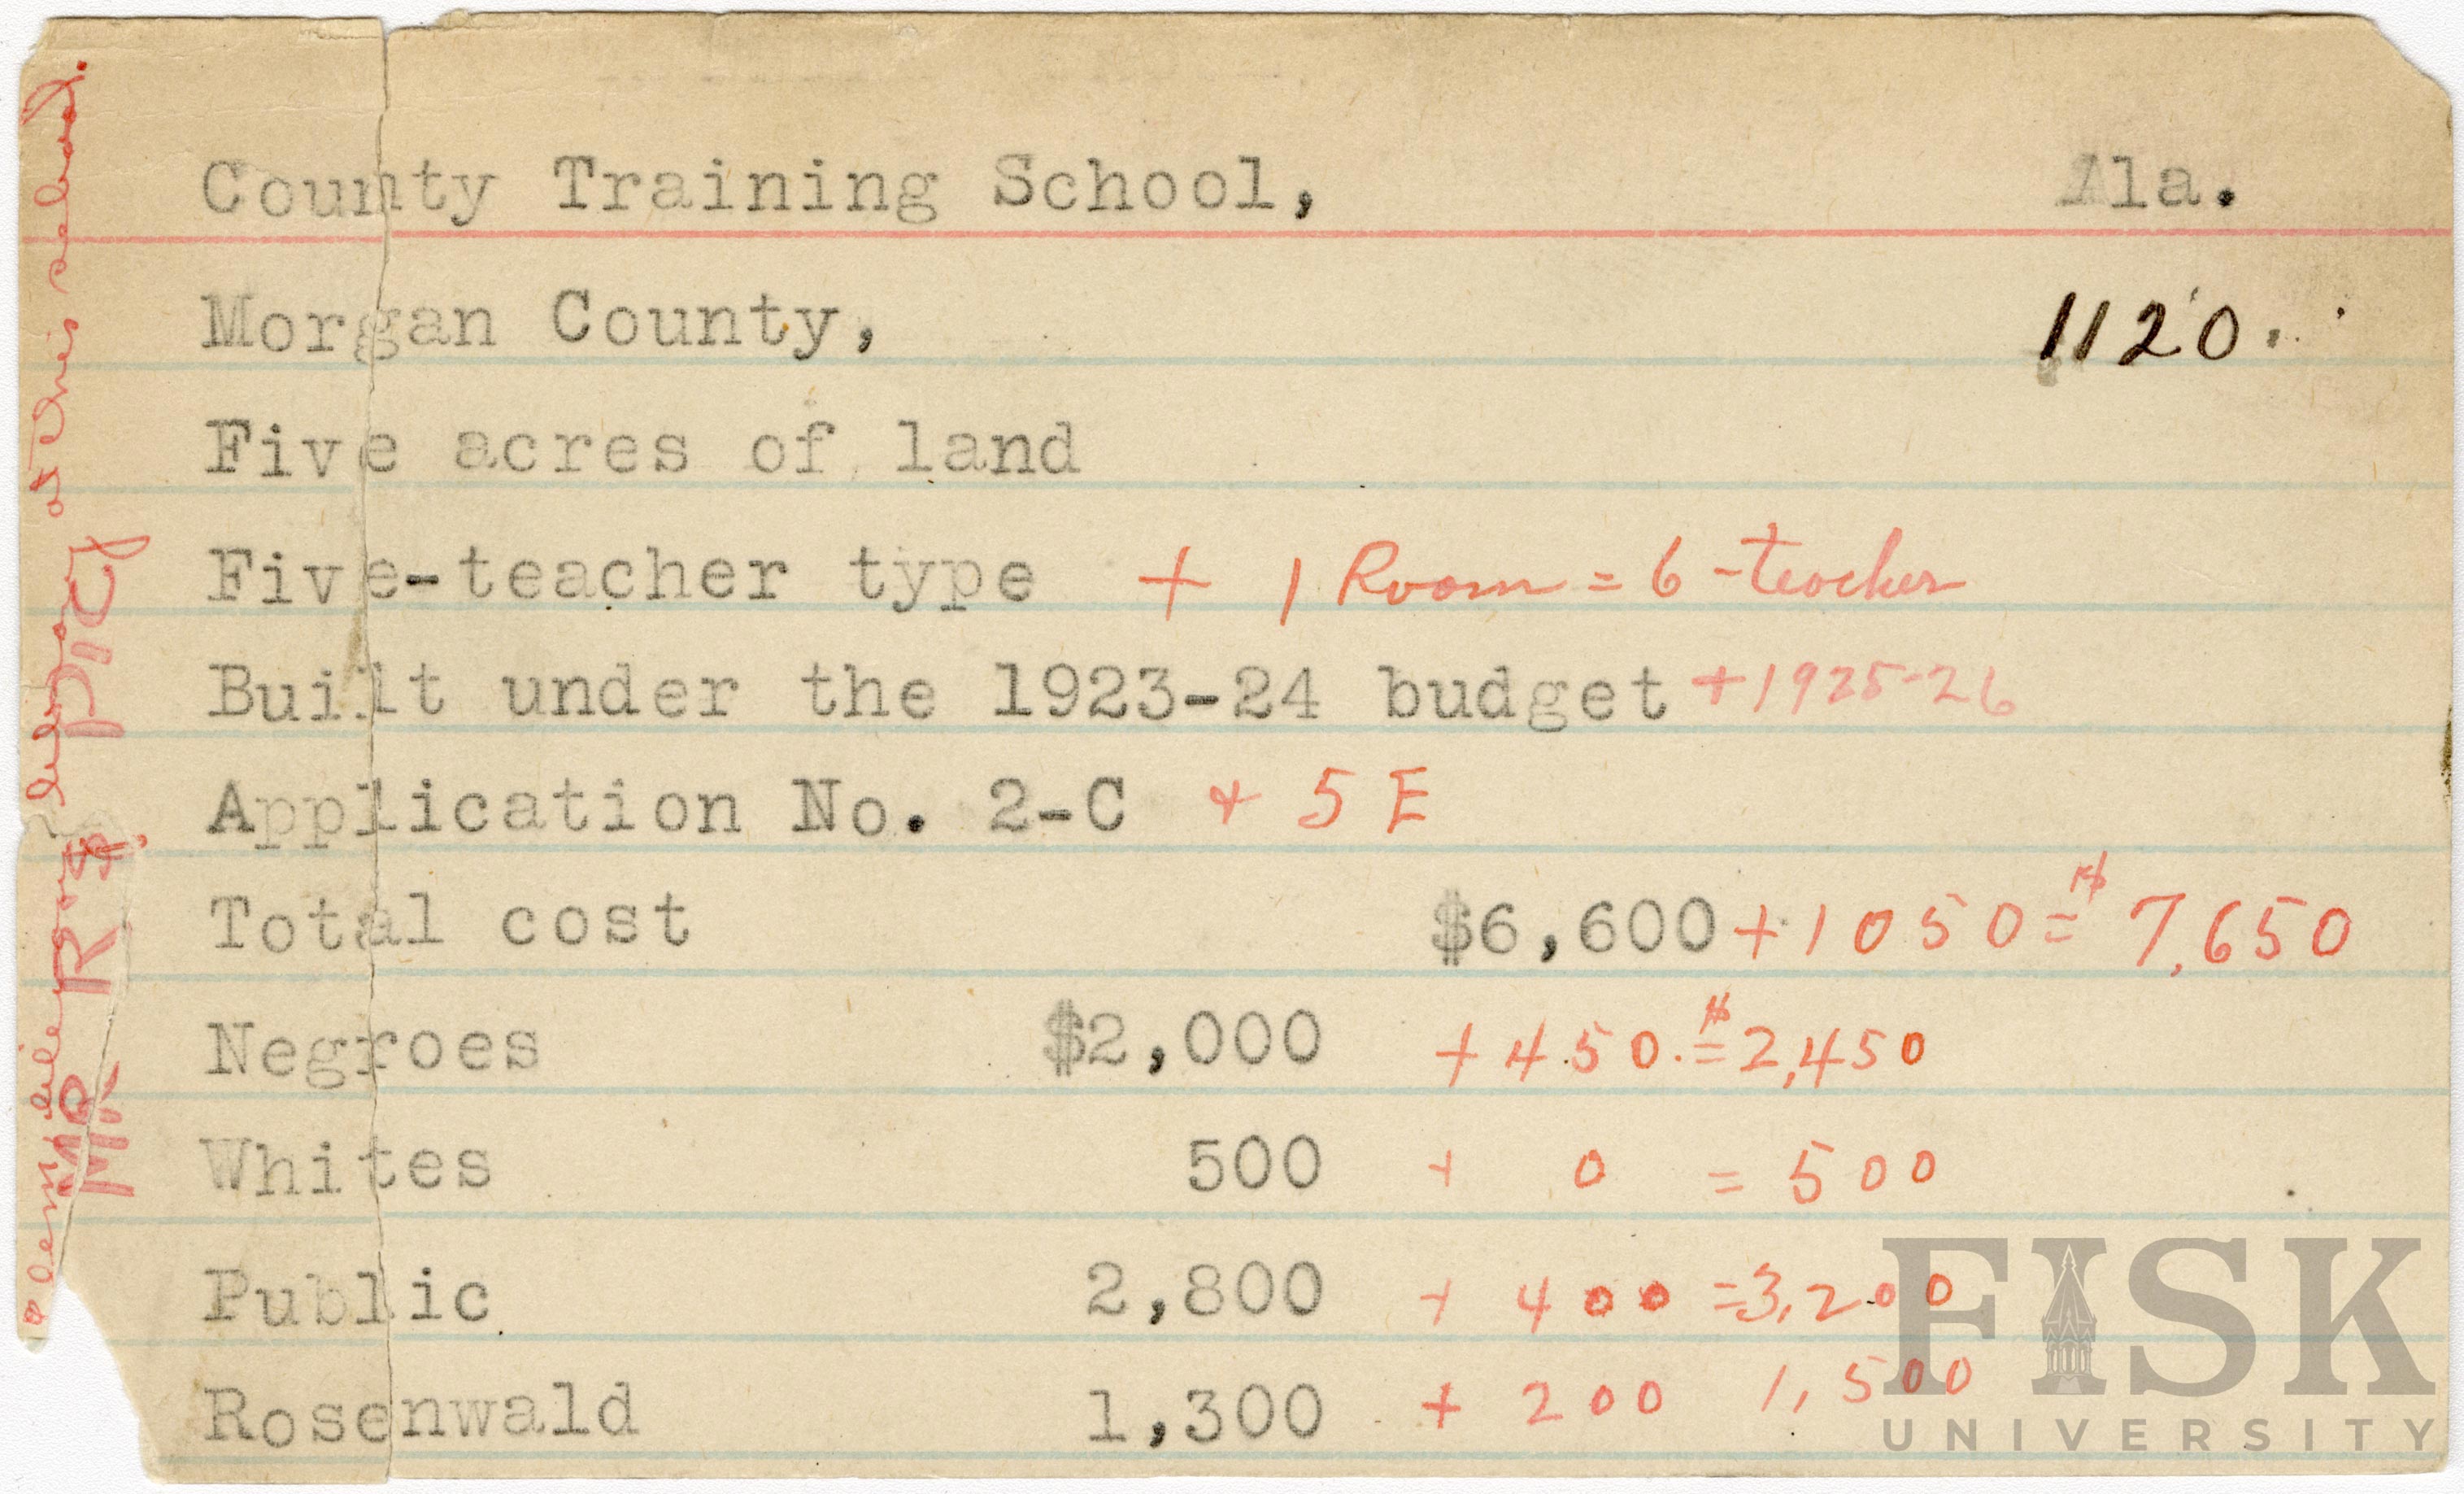 County Training School, Ala.
Morgan County, 1120.
Five acres of land
Five-teacher type + 1 Room = 6-teacher
Built under the 1923-24 budget +1925-26
Application No. 2-C + 5 E
Total cost $6,600 + 1050 = $7,650
Negroes $2,000 + 450. = $2,450
Whites 500 + 0 = 500
Public 2,800 + 400 = 3,200
Rosenwald 1,300 + 200 1,500
library at this school.
PIC
FISK
UNIVERSITY